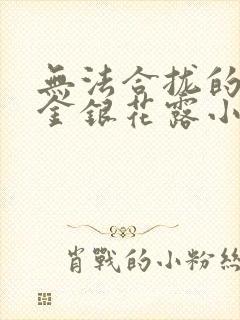 無法合拢的
金銀花露小
肖戰的小粉絲